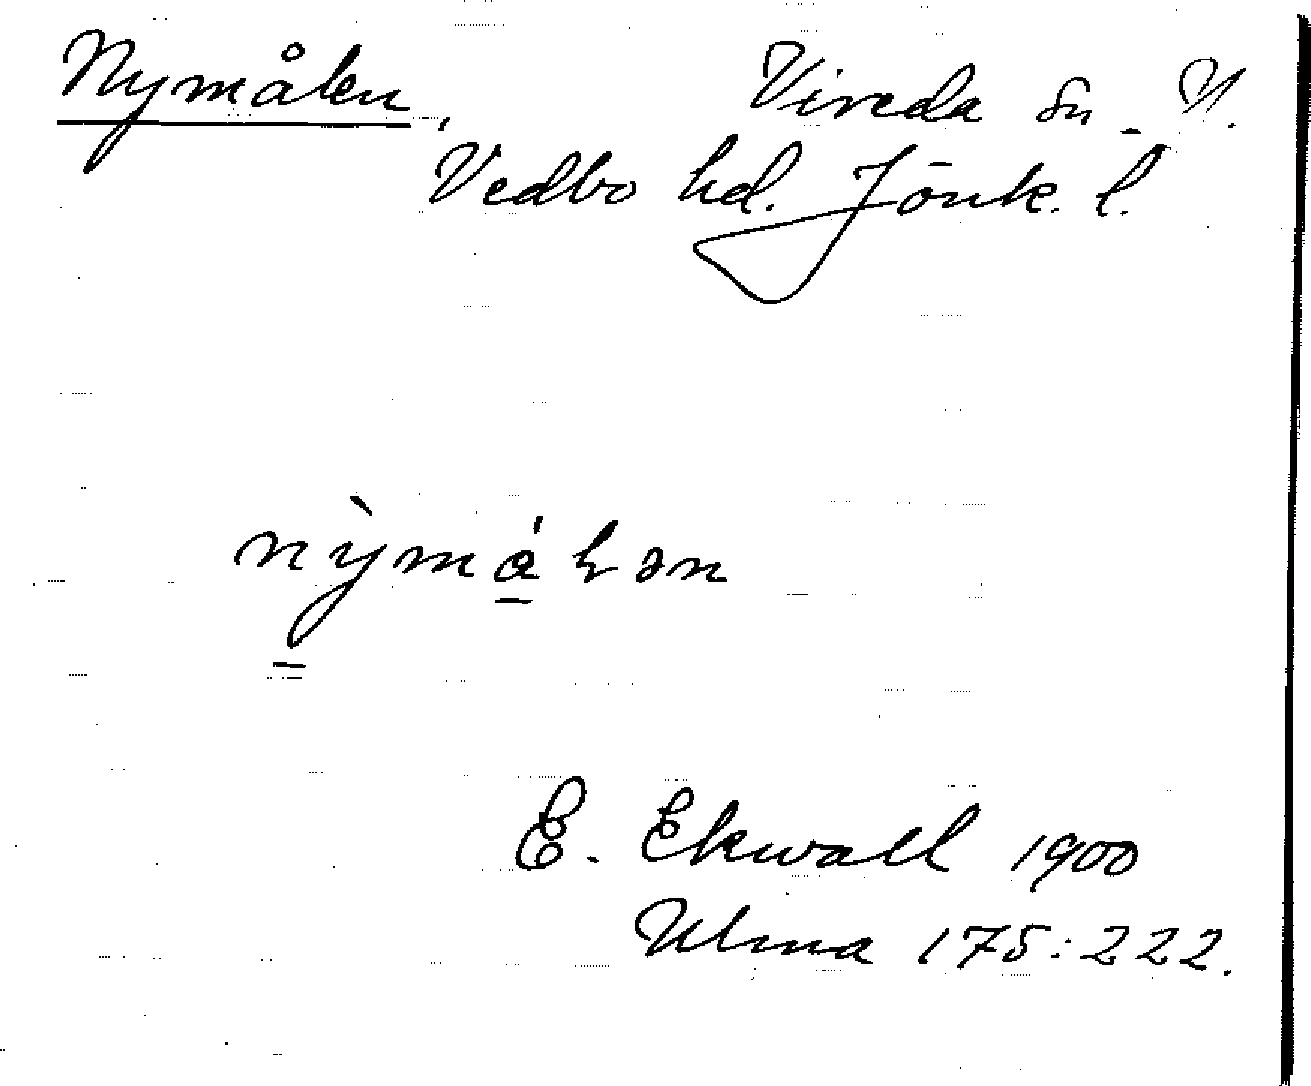 Nymålen, Vireda sn. N.
Vedbo hd. Jönk. l.
nỳmá̱lən
E. Ekwall 1900
Ulma 175:222.